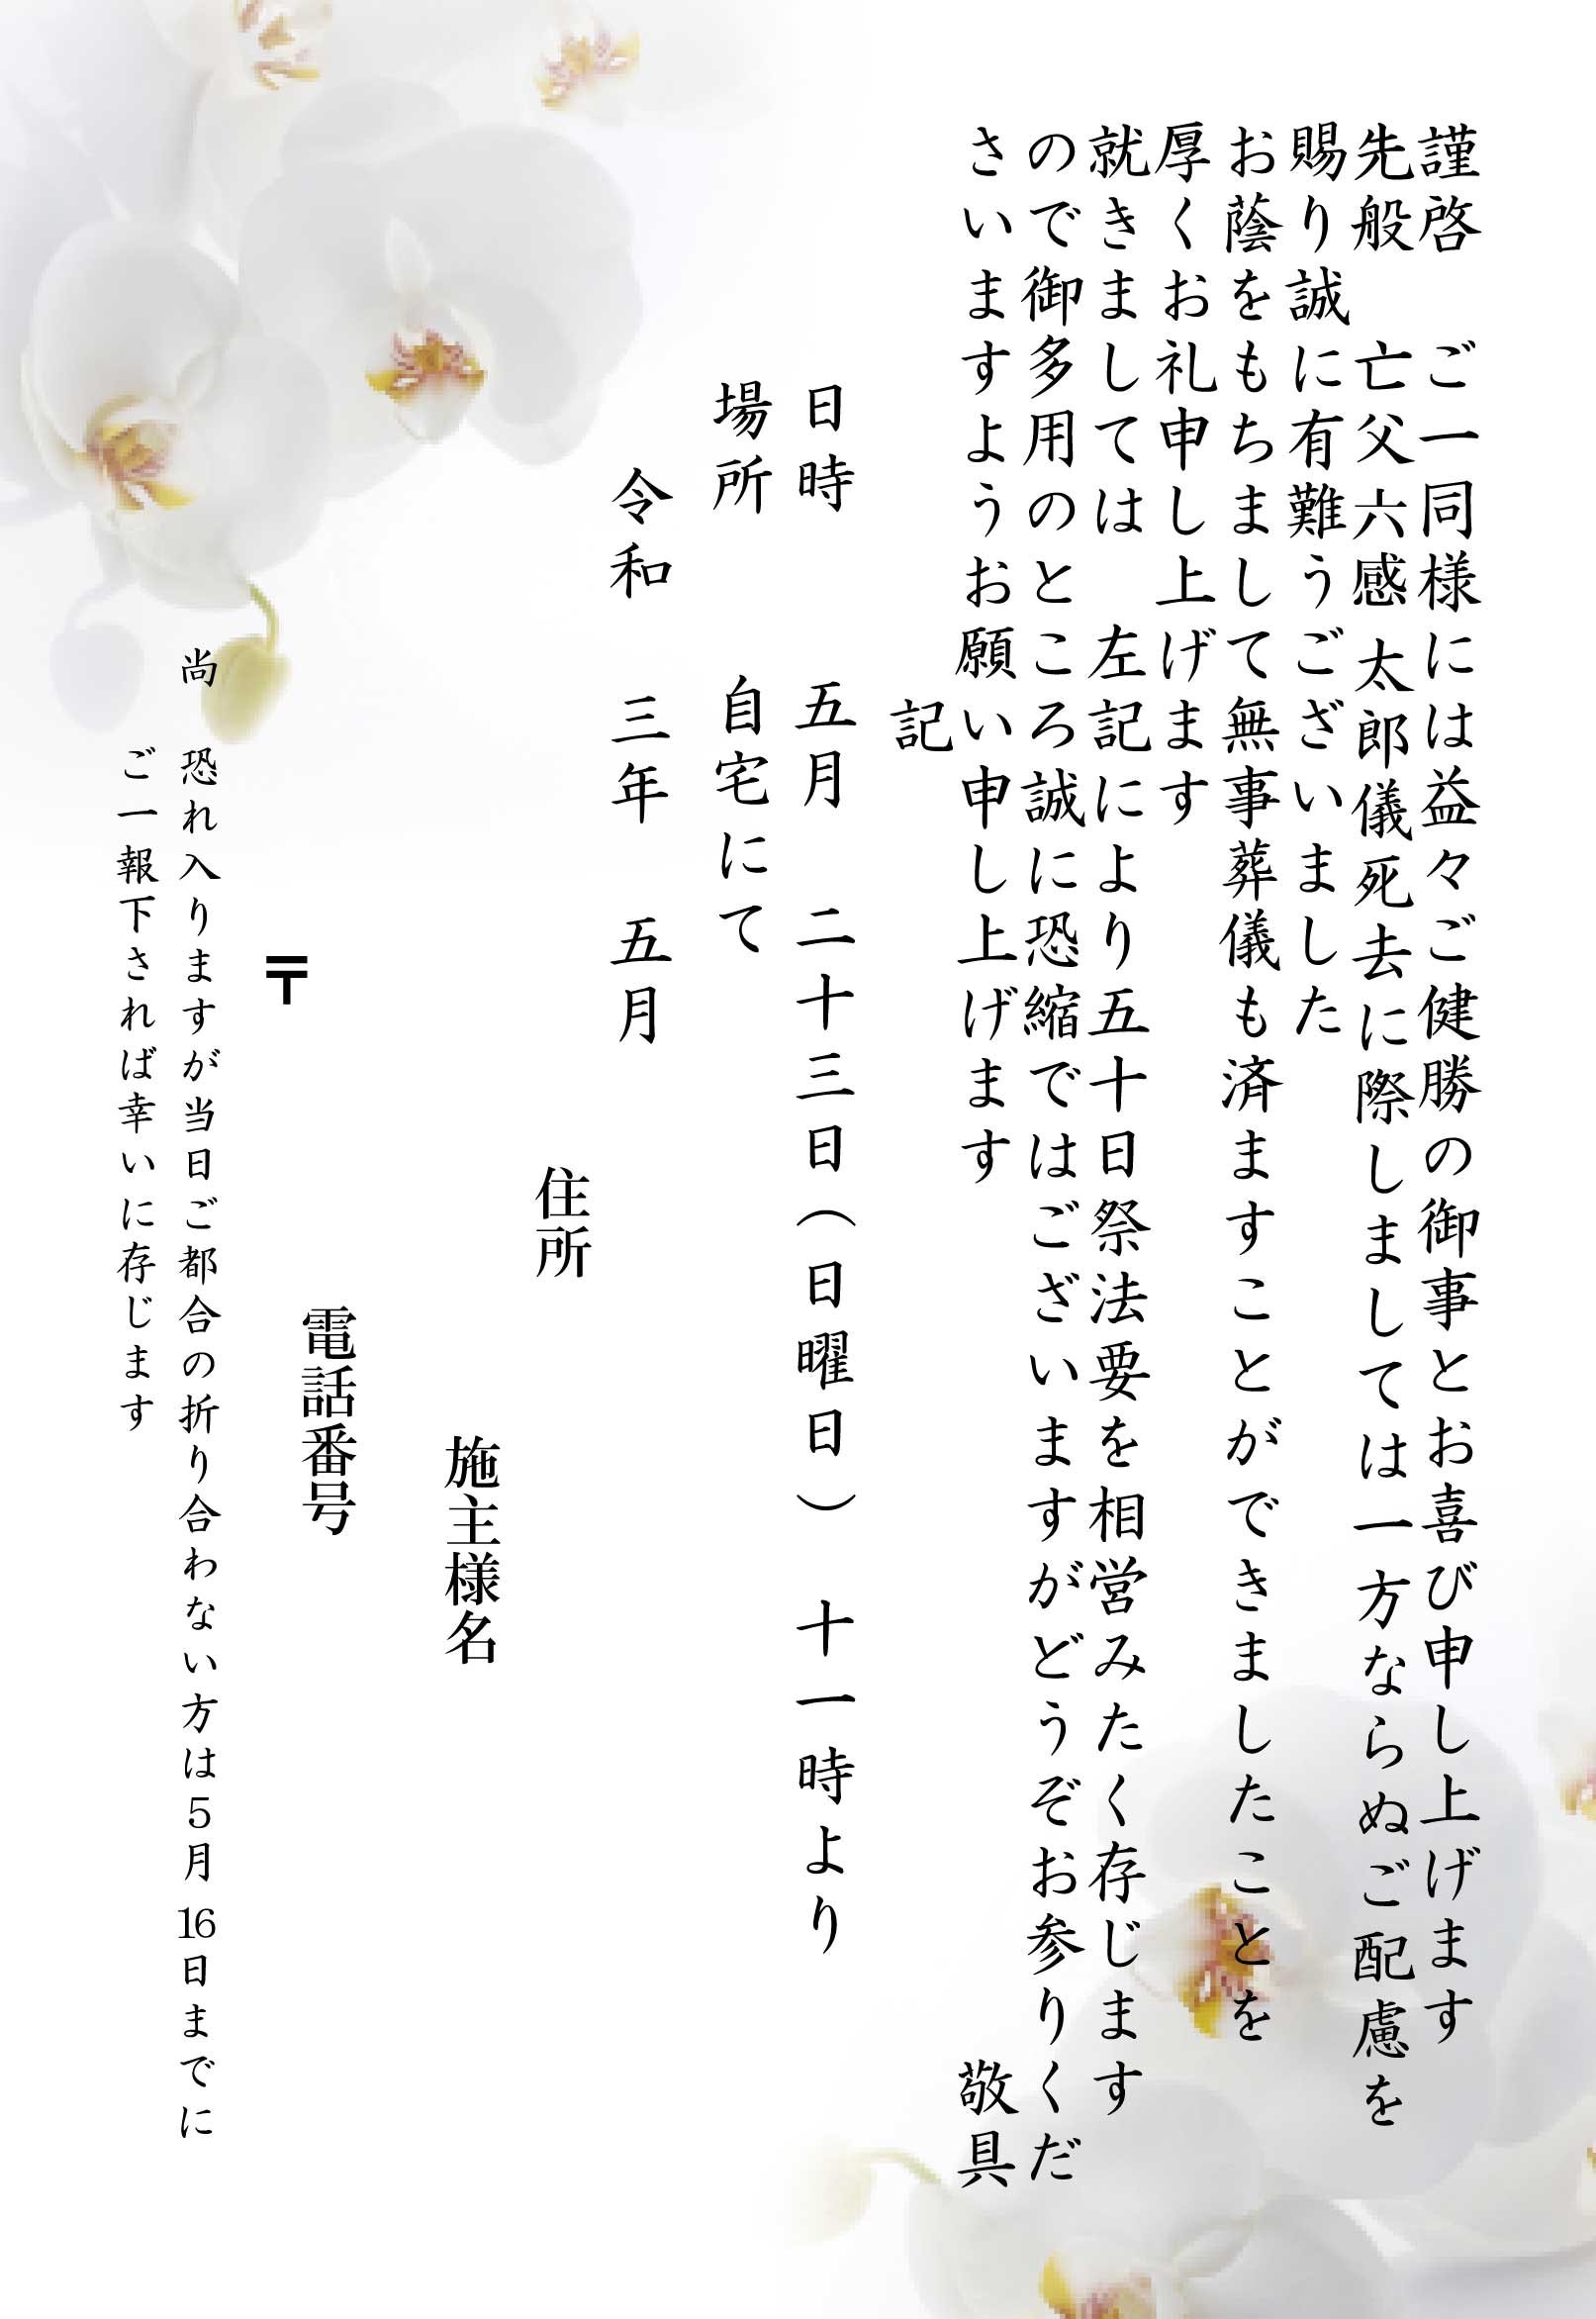 謹啓　ご一同様には益々ご健勝の御事とお喜び申し上げます
先般　亡父六感 太郎儀死去に際しましては一方ならぬご配慮を
賜り誠に有難うございました
お蔭をもちまして無事葬儀も済ますことができましたことを
厚くお礼申し上げます
就きましては　左記により五十日祭法要を相営みたく存じます
ので御多用のところ誠に恐縮ではございますがどうぞお参りくだ
さいますようお願い申し上げます　敬具
記
日時　五月　二十三日（日曜日）　十一時より
場所　自宅にて
令和　三年　五月
住所
施主様名
電話番号
〒
尚　恐れ入りますが当日ご都合の折り合わない方は５月 16日までに
ご一報下されば幸いに存じます